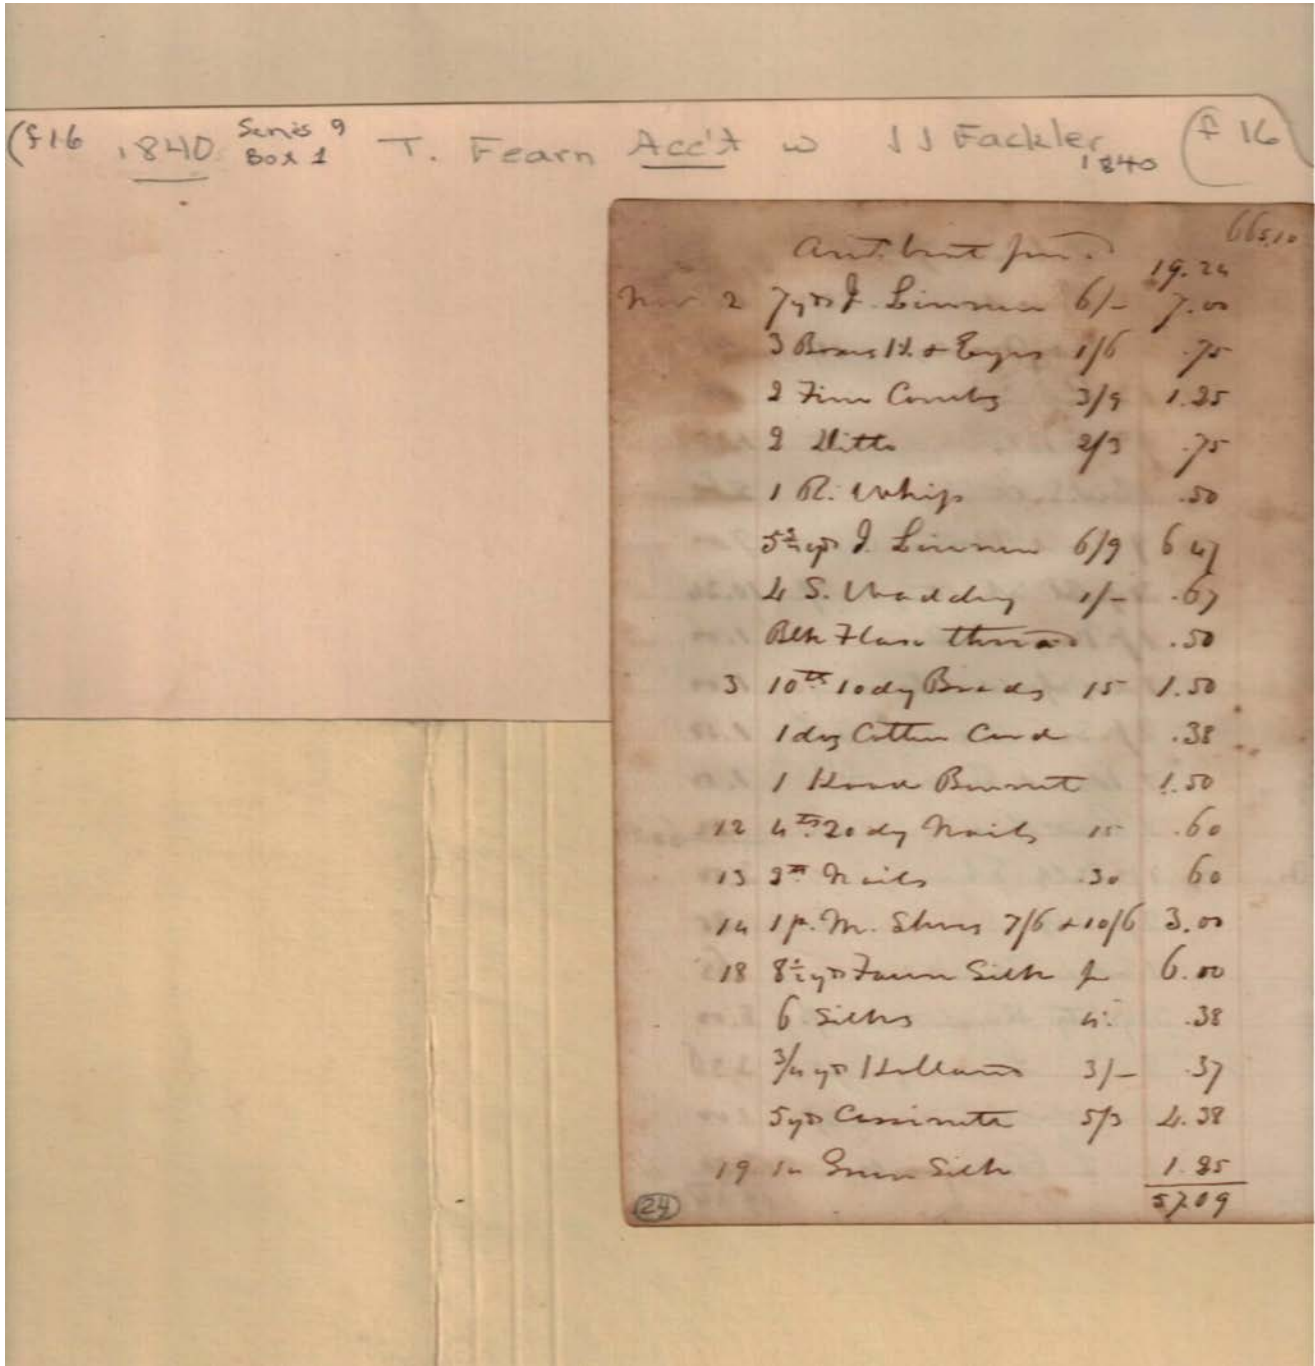 (f16 1840 Series 9 Box 1 T. Fearn Acc't w J J Fackler 1840 (f 16
665.10
Amt. brot for.d 19.24
Nov 2 7 yds I. Linnen 6/- 7.00
3 Boxes H. & Eyes 1/6 .75
2 Fine Combs 3/9 1.25
2 Ditto 2/3 .75
1 R. Whip .50
yds I. Linnen 6/9 6 47
4 S. Wadding 1/- .67
Blk Flax thread .50
3 10 lb 10dy Brads 15 1.50
1 doz Cotton Cord .38
1 Hood Bonnet 1.50
12 4 lb 20 dy Nails 15 .60
13 2 lb Nails .30 60
14 1 p. M. Shoes 7/6 + 10/6 3.00
18 8½ yds Silk 6.00
6 Silks .38
3/4 yd Holland 3/- .37
5 yds Cassinette 5/3 4.38
19 Green Silk 1.25
57.09
24